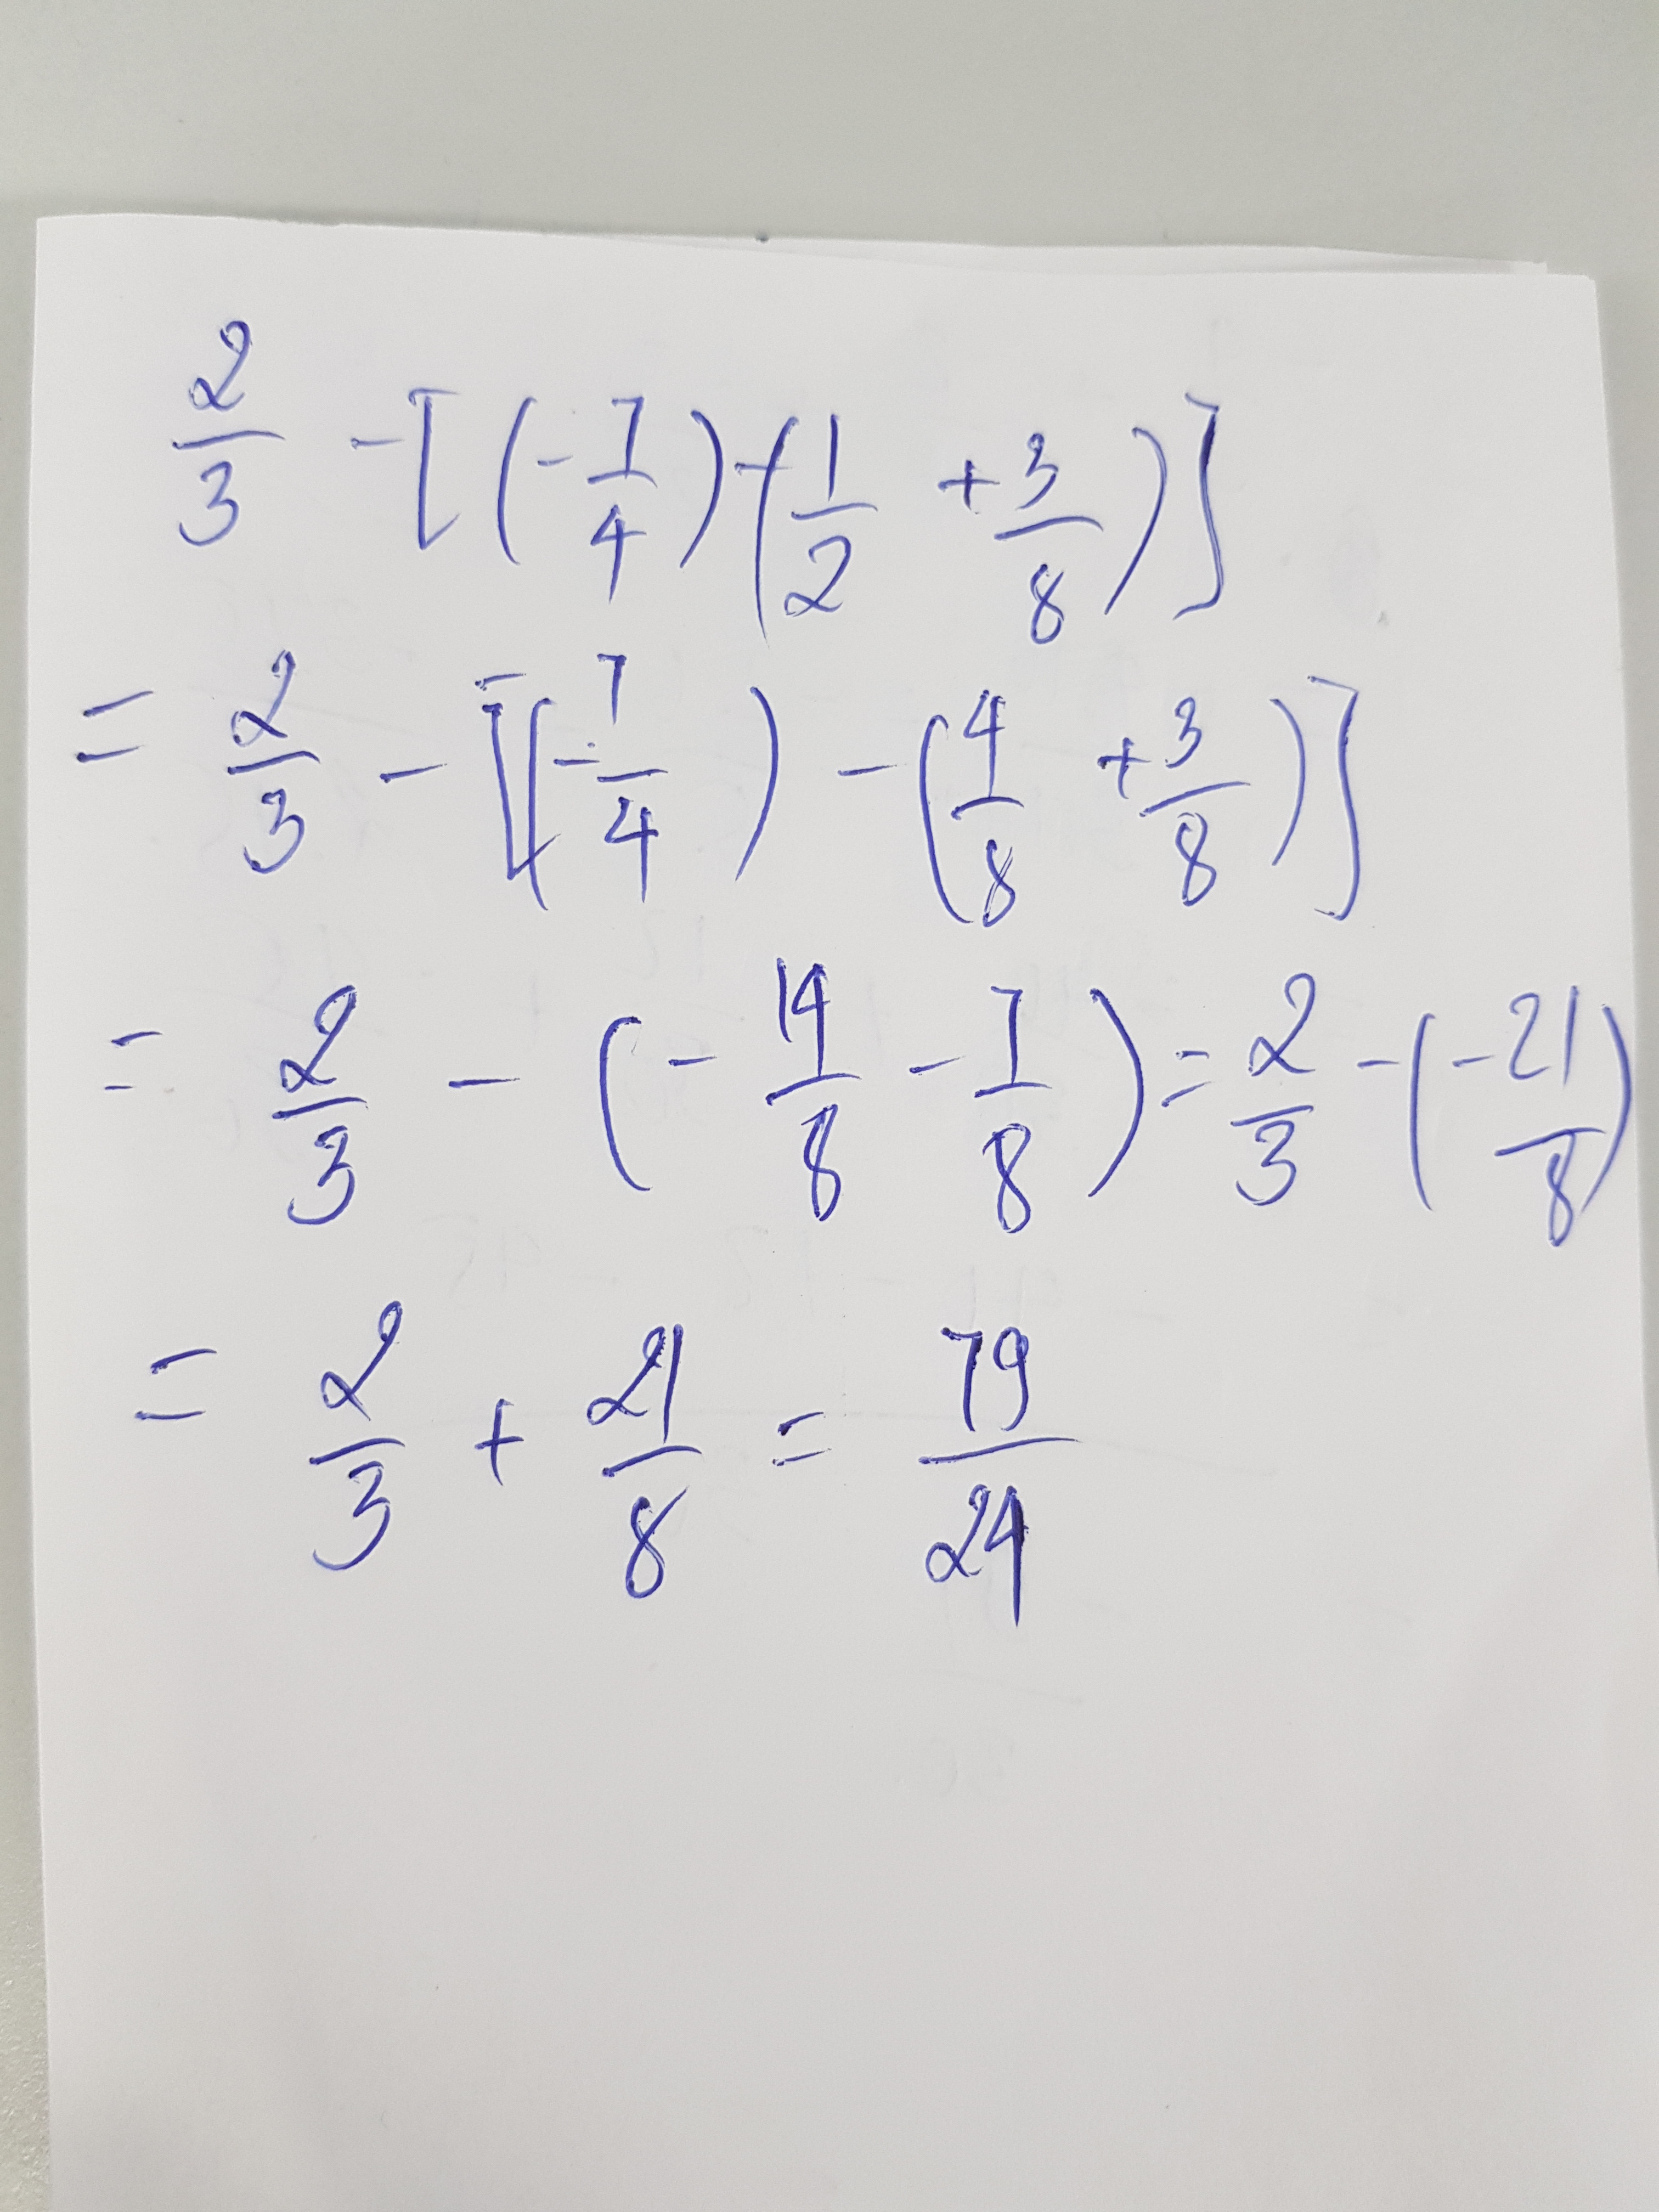 2/3 - [(-7/4) - (1/2 + 3/8)]
= 2/3 - [(-7/4) - (4/8 + 3/8)]
= 2/3 - (-14/8 - 7/8) = 2/3 - (-21/8)
= 2/3 + 21/8 = 79/24